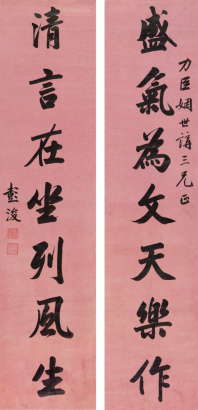 力臣姻世講三兄正
盛氣為文天樂作
清言在坐列風生
彭浚